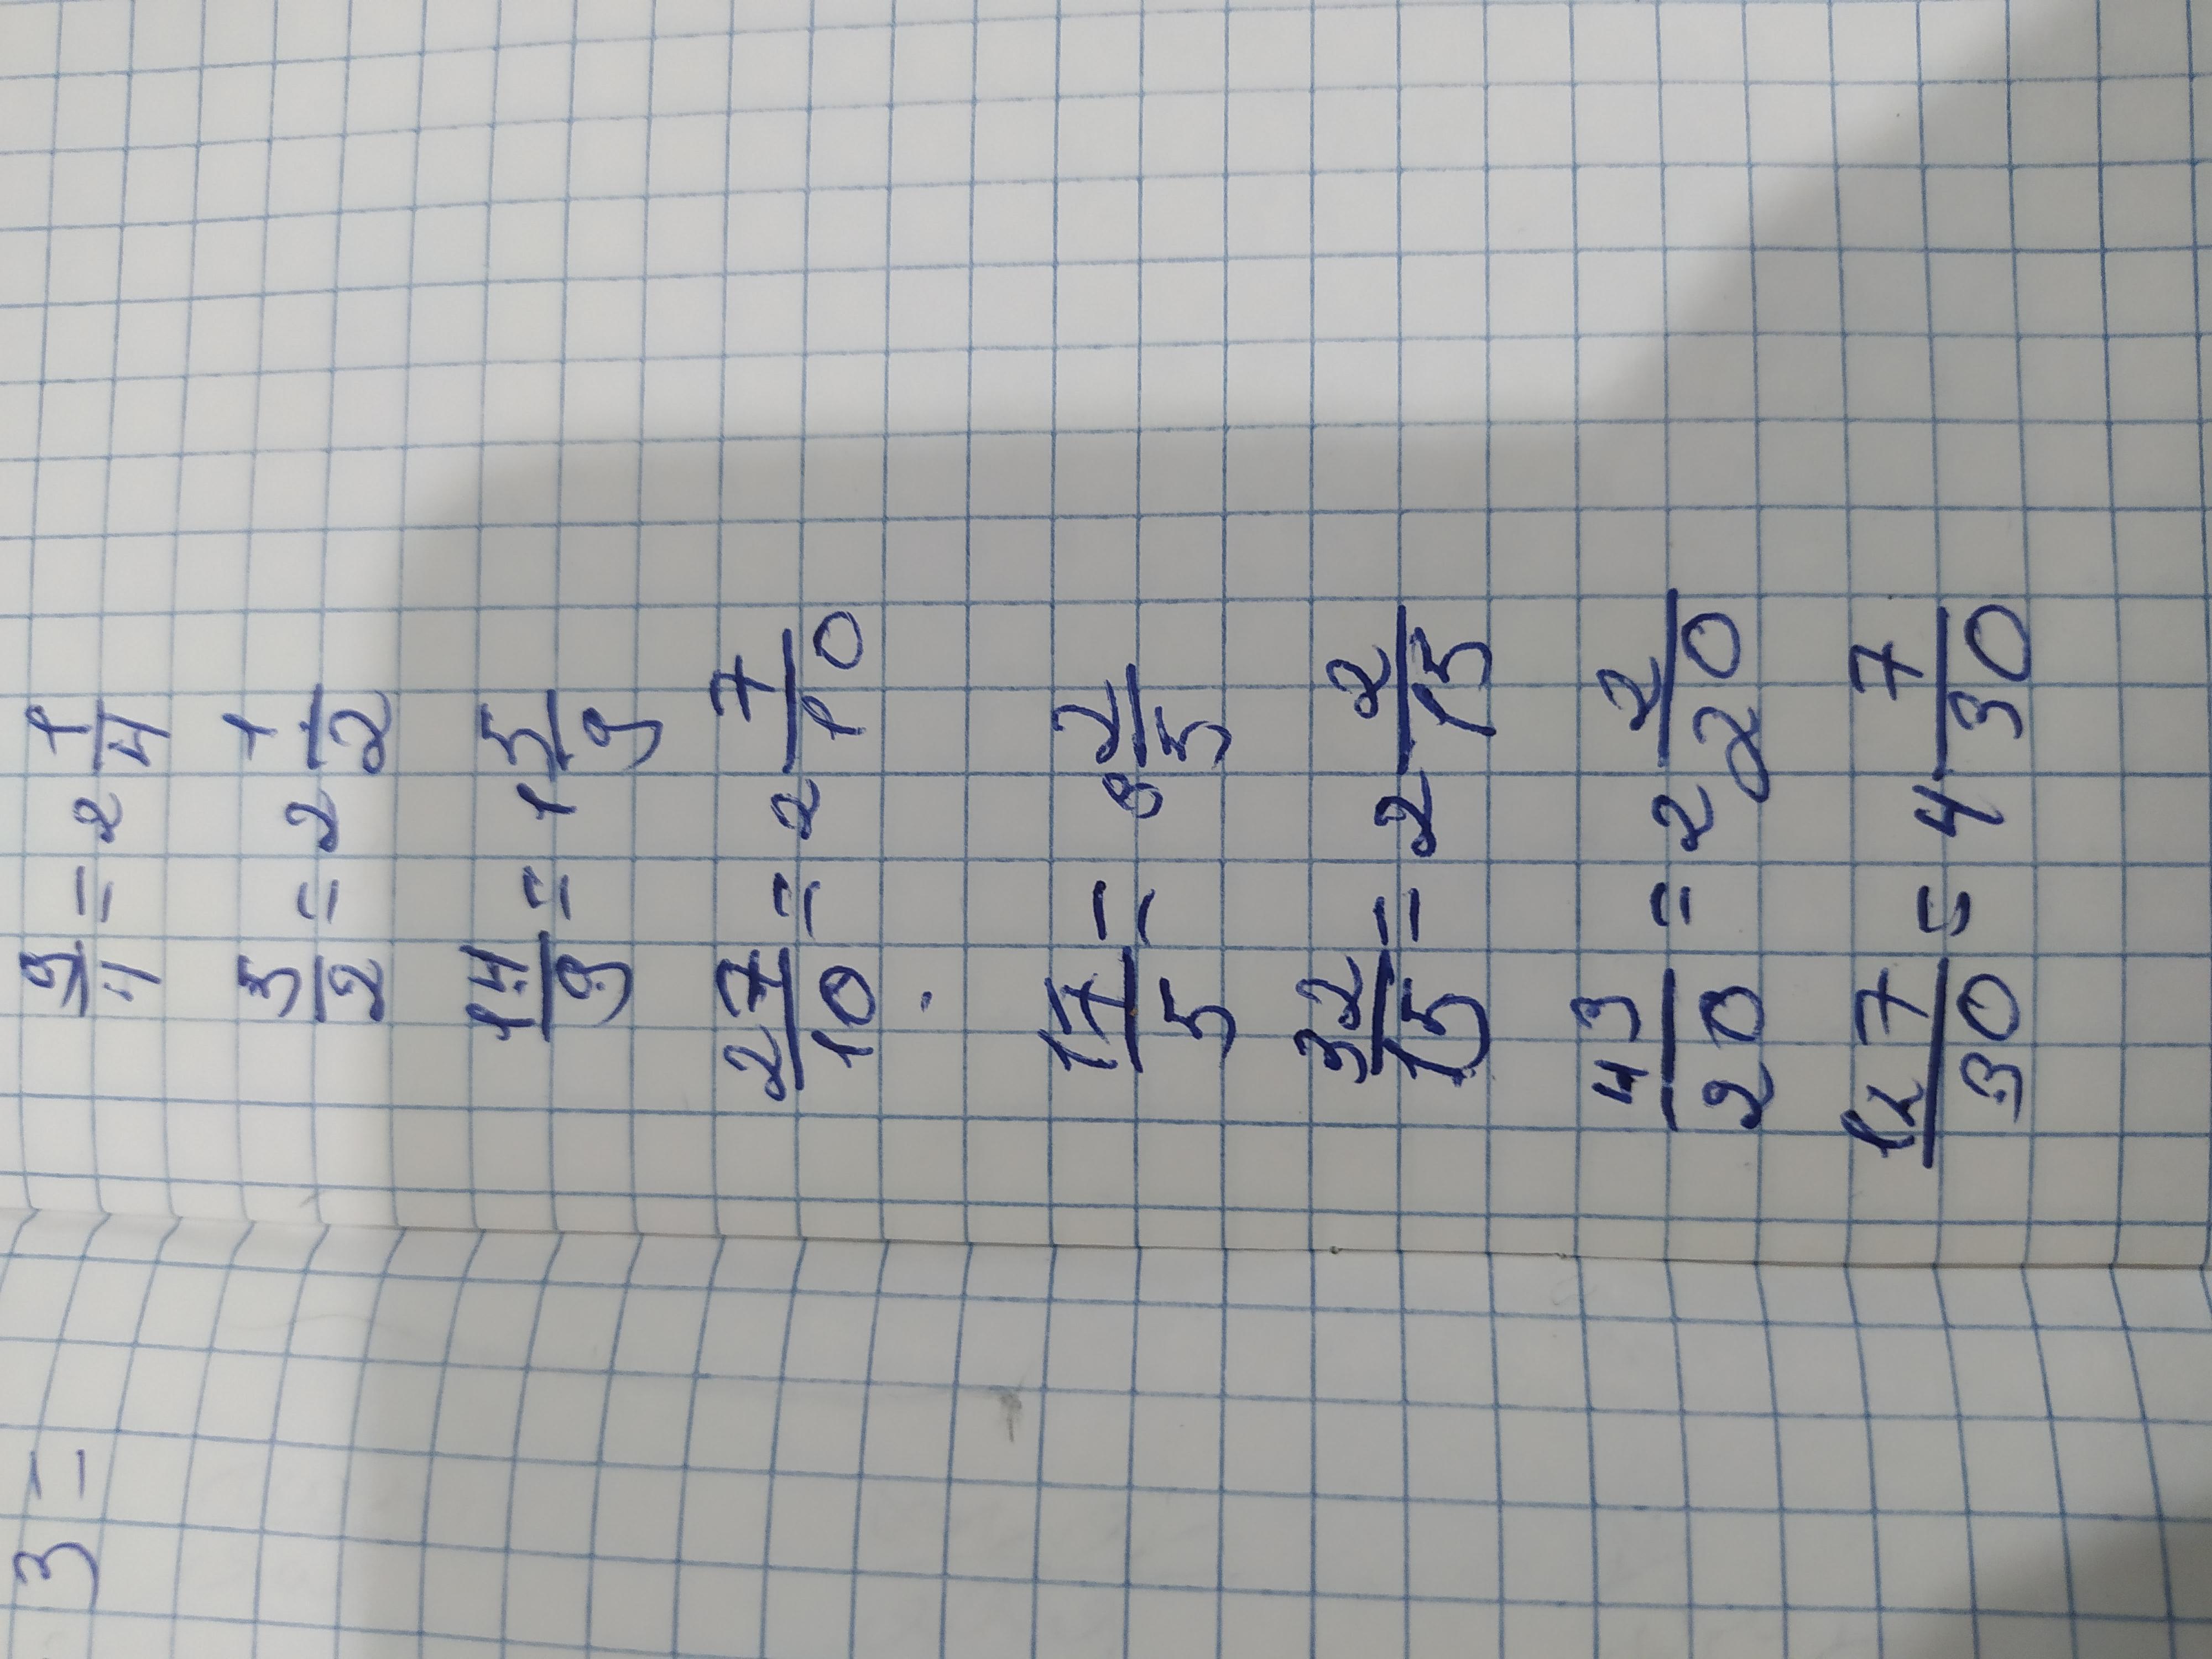 9/4 = 2 1/4
5/2 = 2 1/2
14/9 = 1 5/9
27/10 = 2 7/10
17/5 = 3 2/5
32/15 = 2 2/15
43/20 = 2 2/20
127/30 = 4 7/30
3 =